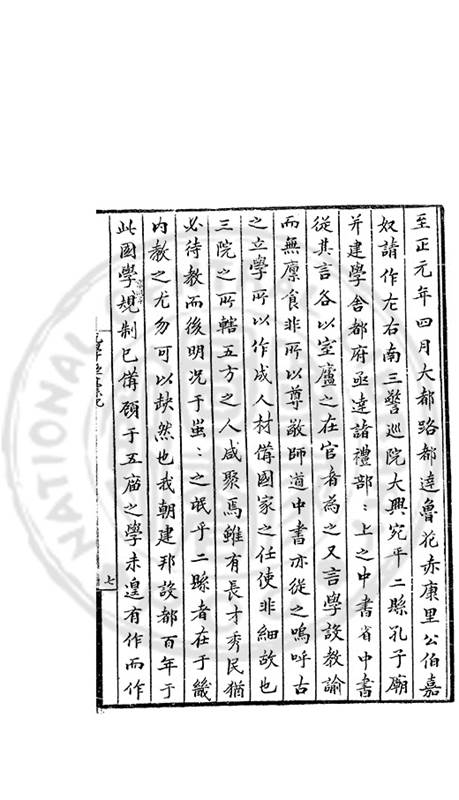 至正元年四月大都路都達魯花赤康里公伯嘉
奴請作左右南三警巡院大興宛平二縣孔子廟
并建學舍都府亟達諸禮部:上之中書省中書
從其言各以室廬之在官者為之又言學設教諭
而無廩食非所以尊敬師道中書亦從之嗚呼古
之立學所以作成人材備國家之任使非細故也
三院之所轄五方之人咸聚焉雖有長才秀民猶
必待教而後明况于蚩:之氓乎二縣者在于畿
内教之尤勿可以缺然也我朝建邦設都百年于
此國學規制已備顧于五庙之學未遑有作而作
七
NATIONAL